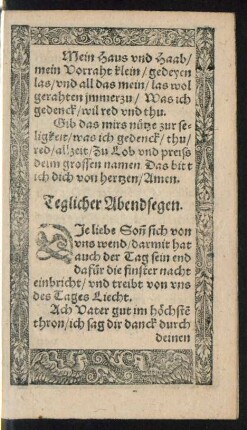 Mein Haus vnd Haab/
mein Vorraht klein/ gedeyen
las/vnd all das mein/ las wol
gerahten jmmerzu/ Was ich
gedenck/ wil red vnd thu.
Gib das mirs nütze zur se-
ligkeit/was ich gedenck/ thu/
red/ allzeit/ Zu Lob vnd preiss
deim grossen namen Das bitt
ich dich von hertzen/ Amen.
Teglicher Abendsegen.
DJe liebe Soñ sich von
vns wend/ darmit hat
auch der Tag sein end
dafür die finster nacht
einbricht/ vnd treibt von vns
des Tages Liecht.
Ach Vater gut im höchstẽ
thron/ ich sag dir danck durch
deinen